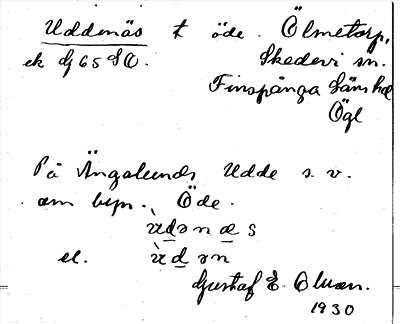 Uddenäs t öde. Ölmetorp,
ek G 65 SO. Skedevi sn.
Finspånga läns hd
Ögl
På Ängalunds Udde s.v.
om byn. Öde.
ùdənæs
el. ùdən
Gustaf E. Olsson.
1930